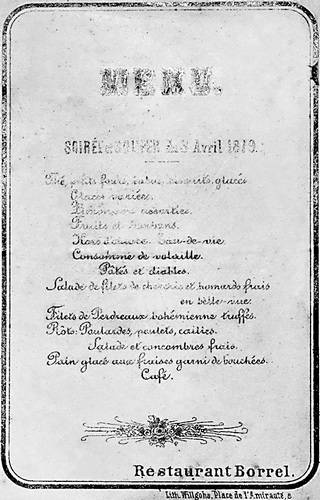 MENU.
SOIRÉE et SOUPER du 3 Avril 1879.
Thé, petits fours, glacés
Glaces variées.
assorties.
Fruits et bonbons.
Hors d'œuvre. Eau-de-vie.
Consommé de volaille.
Pâtés et diables.
Salade de filets de et homards frais
en belle-vue.
Filets de Perdreaux bohémienne truffés.
Rôts: Poulardes, poulets, cailles.
Salade et concombres frais.
Pain glacé aux fraises garni de bouchées.
Café.
Restaurant Borrel.
Lith. Willgohs, Place de l'Amirauté, 6.